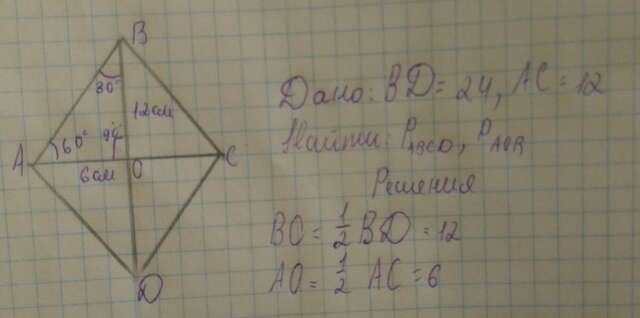 B
30°
12см
60°
94
A
O
C
6см
D
Дано: BD = 24, AC = 12
Найти: P_ABCD, P_AOB
Решения
BO = 1/2 BD = 12
AO = 1/2 AC = 6